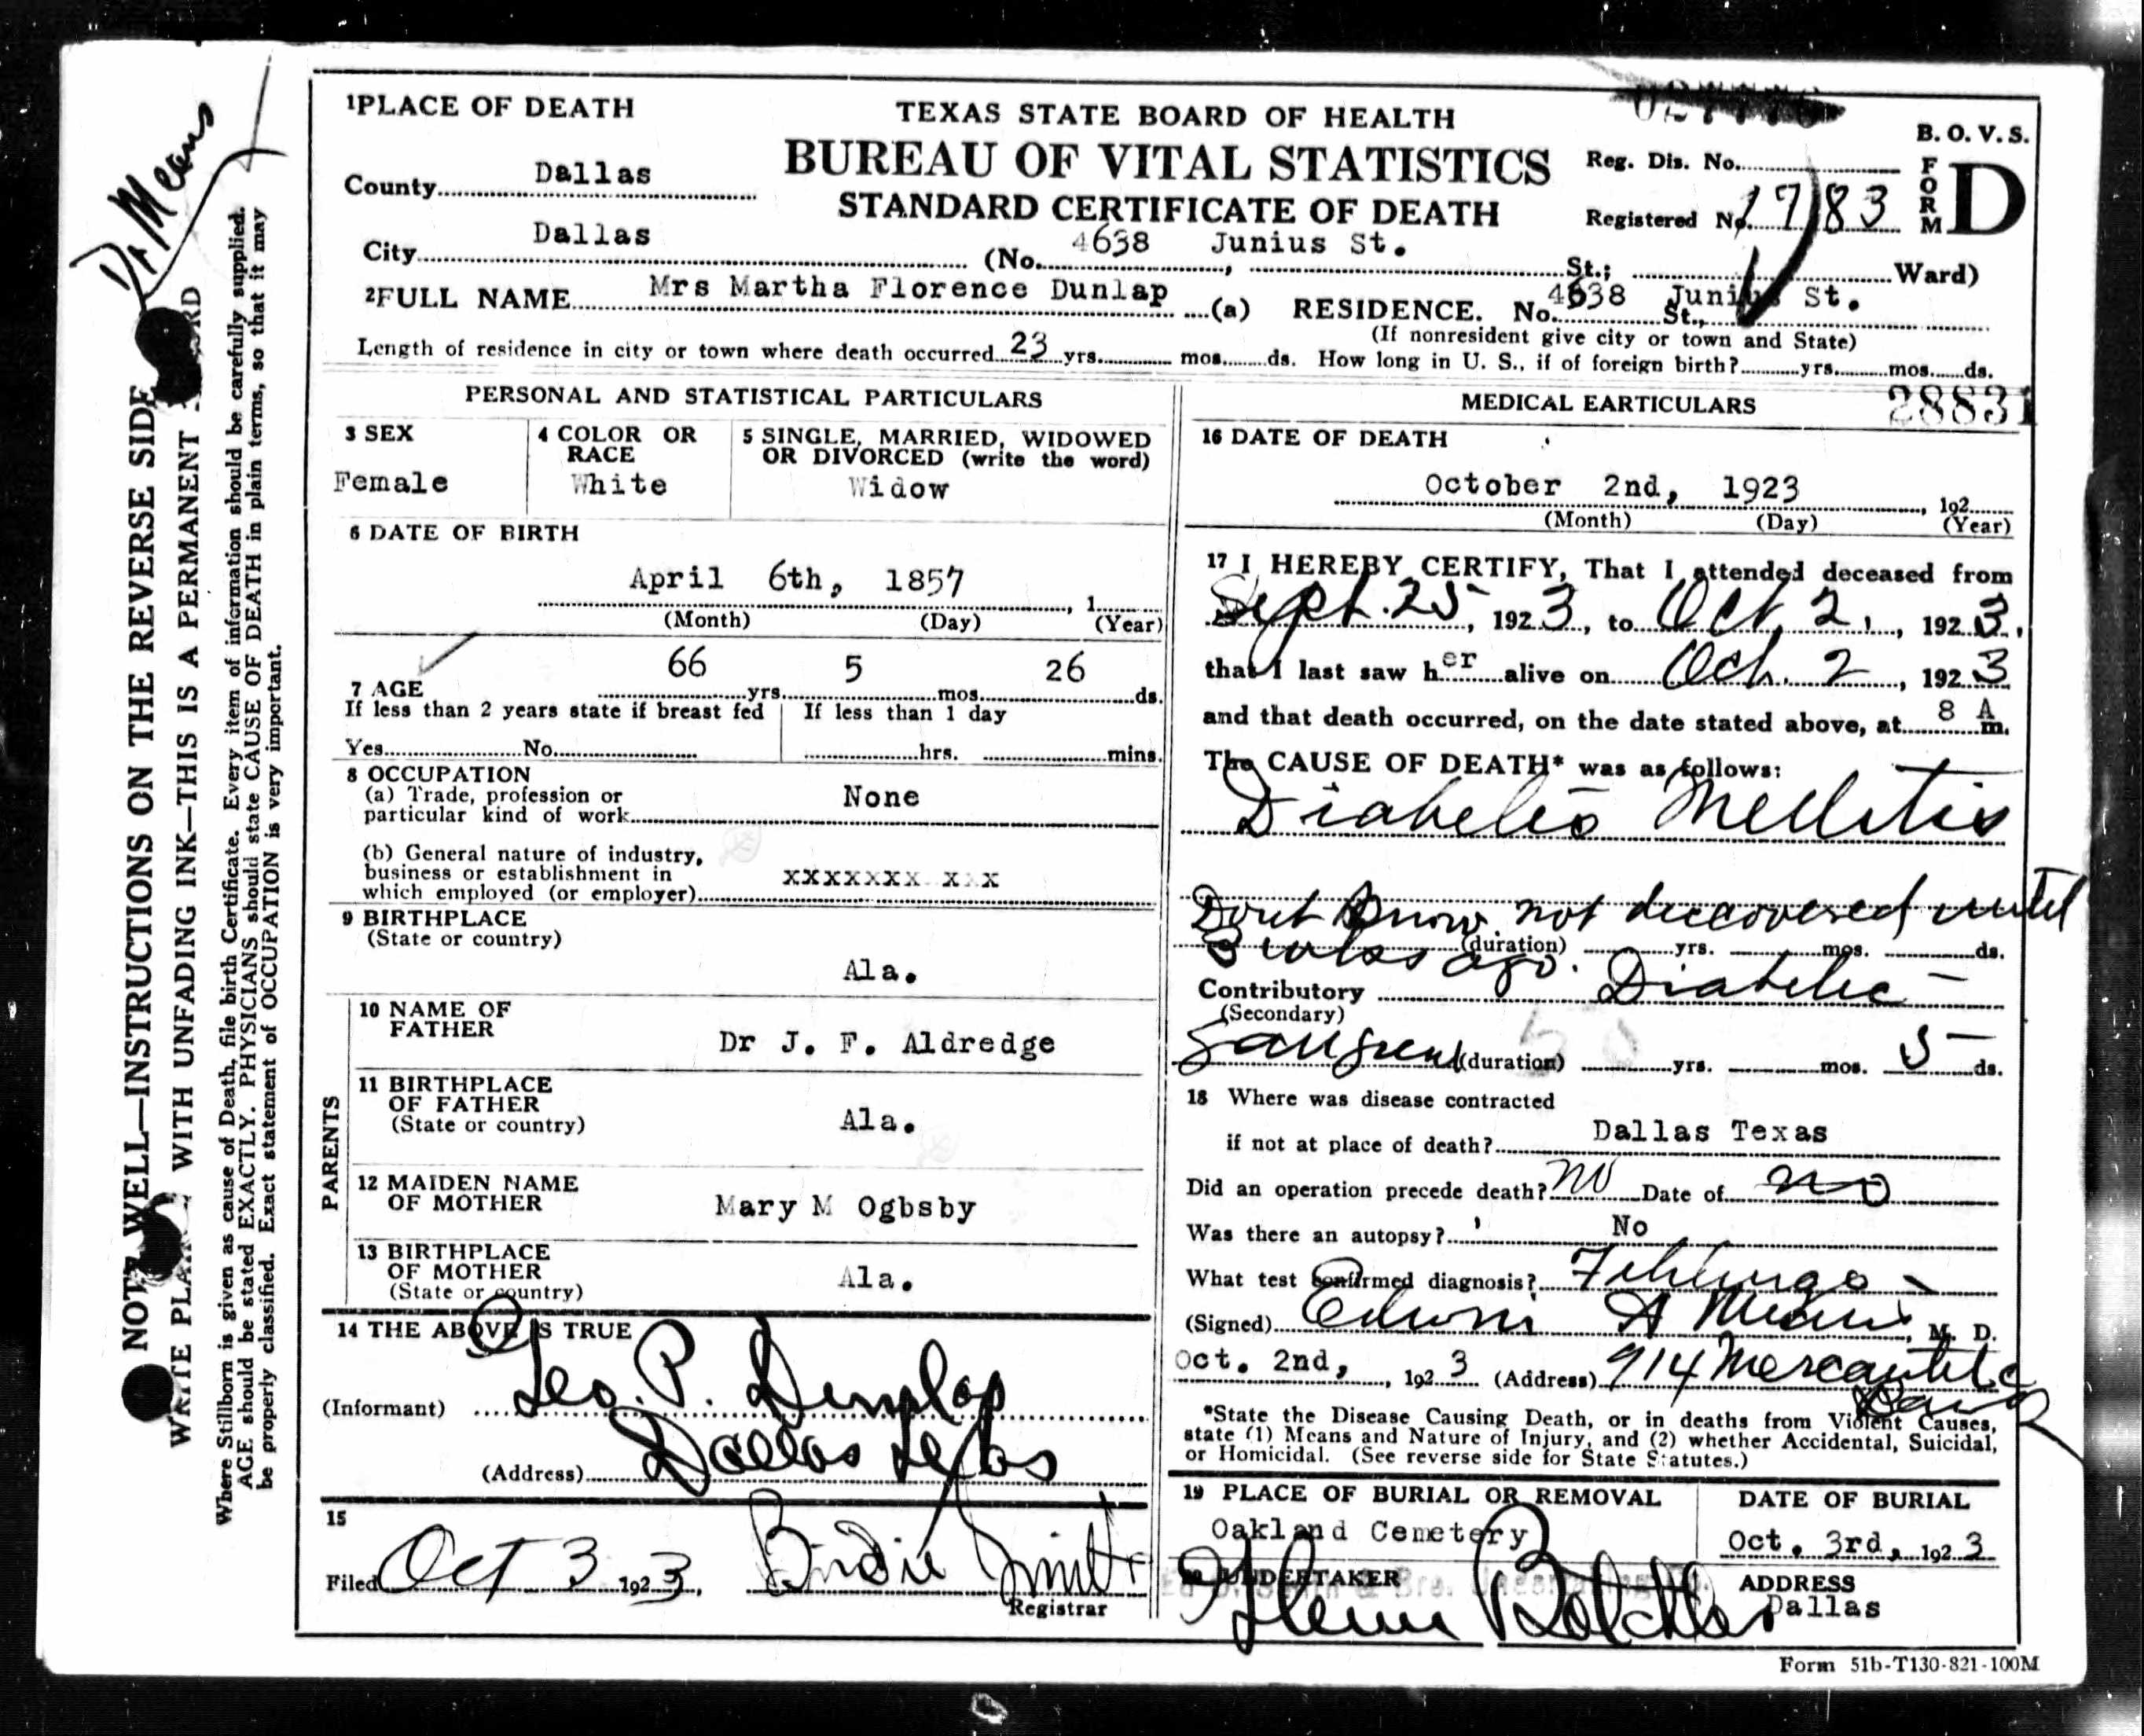 1 PLACE OF DEATH
TEXAS STATE BOARD OF HEALTH
BUREAU OF VITAL STATISTICS
STANDARD CERTIFICATE OF DEATH
B. O. V. S.
FORM D
Reg. Dis. No.
Registered No. 1783
County Dallas
City Dallas (No. 4638 Junius St. St.; Ward)
2 FULL NAME Mrs Martha Florence Dunlap (a) RESIDENCE. No. 4638 Junius St. St.,
(If nonresident give city or town and State)
Length of residence in city or town where death occurred 23 yrs. mos. ds. How long in U. S., if of foreign birth? yrs. mos. ds.
PERSONAL AND STATISTICAL PARTICULARS
3 SEX
Female
4 COLOR OR RACE
White
5 SINGLE, MARRIED, WIDOWED
OR DIVORCED (write the word)
Widow
6 DATE OF BIRTH
April 6th, 1857 , 1
(Month) (Day) (Year)
7 AGE 66 yrs. 5 mos. 26 ds.
If less than 2 years state if breast fed
Yes No
If less than 1 day
hrs. mins.
8 OCCUPATION
(a) Trade, profession or
particular kind of work None
(b) General nature of industry,
business or establishment in
which employed (or employer) xxxxxxx x x
9 BIRTHPLACE
(State or country)
Ala.
PARENTS
10 NAME OF
FATHER Dr J. F. Aldredge
11 BIRTHPLACE
OF FATHER
(State or country) Ala.
12 MAIDEN NAME
OF MOTHER Mary M Ogbsby
13 BIRTHPLACE
OF MOTHER
(State or country) Ala.
14 THE ABOVE IS TRUE
(Informant) Geo. P. Dunlap
(Address) Dallas Texas
15
Filed Oct 3 1923. Birdie Smith
Registrar
28831
MEDICAL EARTICULARS
16 DATE OF DEATH
October 2nd, 1923 , 192
(Month) (Day) (Year)
17 I HEREBY CERTIFY, That I attended deceased from
Sept. 25, 1923, to Oct. 2, 1923,
that I last saw her alive on Oct. 2, 1923
and that death occurred, on the date stated above, at 8 A m.
The CAUSE OF DEATH* was as follows:
Diabetes Mellitis
Dont know not discovered until
3 wks ago. (duration) yrs. mos. ds.
Contributory Diabetic
(Secondary)
Gangrene (duration) yrs. mos. 5 ds.
18 Where was disease contracted
if not at place of death? Dallas Texas
Did an operation precede death? no Date of no
Was there an autopsy? No
What test confirmed diagnosis? Fehlings
(Signed) Edwin A Means, M. D.
Oct. 2nd, 1923 (Address) 914 Mercantile
Bank
*State the Disease Causing Death, or in deaths from Violent Causes,
state (1) Means and Nature of Injury, and (2) whether Accidental, Suicidal,
or Homicidal. (See reverse side for State Statutes.)
19 PLACE OF BURIAL OR REMOVAL
Oakland Cemetery
DATE OF BURIAL
Oct. 3rd, 1923
20 UNDERTAKER
ADDRESS
Dallas
Form 51b-T130-821-100M
Dr Means
NOTE WELL—INSTRUCTIONS ON THE REVERSE SIDE
WRITE PLAINLY WITH UNFADING INK—THIS IS A PERMANENT RECORD
Where Stillborn is given as cause of Death, file birth Certificate. Every item of information should be carefully supplied.
AGE should be stated EXACTLY. PHYSICIANS should state CAUSE OF DEATH in plain terms, so that it may
be properly classified. Exact statement of OCCUPATION is very important.